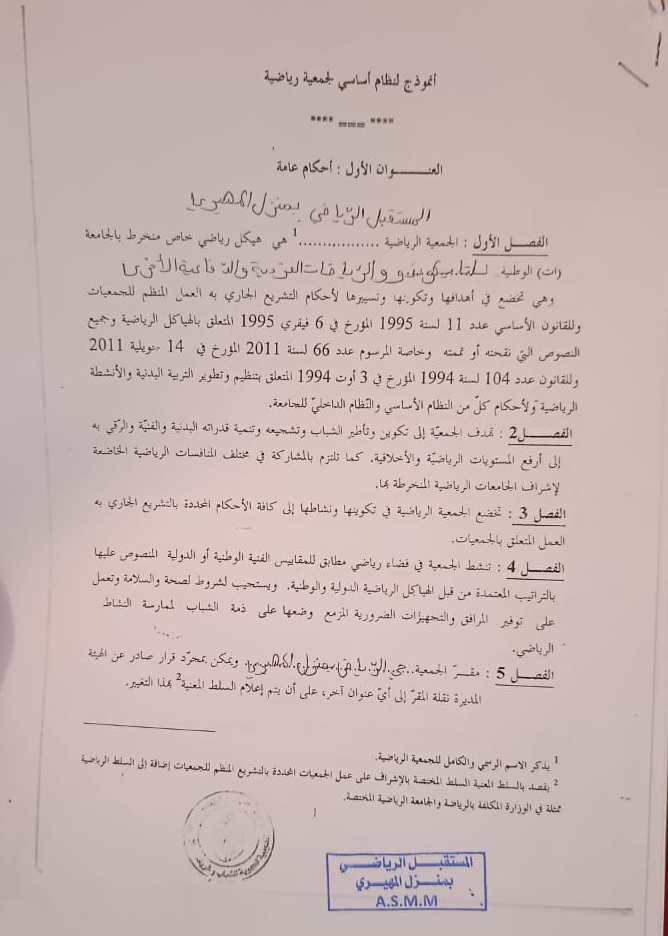 أنموذج لنظام أساسي لجمعية رياضية
**** === ****
العنـــــوان الأول : أحكام عامة
المستقبل الرياضي بمنزل المهيري
الفصــل الأول : الجمعية الرياضية ................1 هي هيكل رياضي خاص منخرط بالجامعة
(ات) الوطنية والرياضات الفردية الأخرى
وهي تخضع في أهدافها وتكوينها وتسييرها لأحكام التشريع الجاري به العمل المنظم للجمعيات
وللقانون الأساسي عدد 11 لسنة 1995 المؤرخ في 6 فيفري 1995 المتعلق بالهياكل الرياضية وجميع
النصوص التي نقحته أو تممته وخاصة المرسوم عدد 66 لسنة 2011 المؤرخ في 14 جويلية 2011
وللقانون عدد 104 لسنة 1994 المؤرخ في 3 أوت 1994 المتعلق بتنظيم وتطوير التربية البدنية والأنشطة
الرياضية ولأحكام كلّ من النظام الأساسي والنّظام الداخليّ للجامعة.
الفصــــل2 : تهدف الجمعيّة إلى تكوين وتأطير الشباب وتشجيعه وتنمية قدراته البدنية والفنيّة والرّقي به
إلى أرفع المستويات الرياضيّة والأخلاقية. كما تلتزم بالمشاركة في مختلف المنافسات الرياضية الخاضعة
لإشراف الجامعات الرياضية المنخرطة بها.
الفصل 3 : تخضع الجمعية الرياضية في تكوينها ونشاطها إلى كافة الأحكام المحددة بالتشريع الجاري به
العمل المتعلق بالجمعيات.
الفصل 4 : تنشط الجمعية في فضاء رياضي مطابق للمقاييس الفنية الوطنية أو الدولية المنصوص عليها
بالتراتيب المعتمدة من قبل الهياكل الرياضية الدولية والوطنية. ويستجيب لشروط لصحة والسلامة وتعمل
على توفير المرافق والتجهيزات الضرورية المزمع وضعها على ذمة الشباب لممارسة النشاط
الرياضي.
الفصل 5 : مقـرّ الجمعية.. الرياضي بمنزل المهيري. ويمكن بمجرّد قرار صادر عن الهيئة
المديرة نقلة المقرّ إلى أيّ عنوان آخر، على أن يتم إعلام السلط المعنية2 بهذا التغيير.
1 يذكر الاسم الرسمي والكامل للجمعية الرياضية.
2 يقصد بالسلط المعنية السلط المختصة بالإشراف على عمل الجمعيات المحددة بالتشريع المنظم للجمعيات إضافة إلى السلط الرياضية
ممثلة في الوزارة المكلفة بالرياضة والجامعة الرياضية المختصة.
المستقبــل الرياضــي
بمنــزل المهيري
A.S.M.M